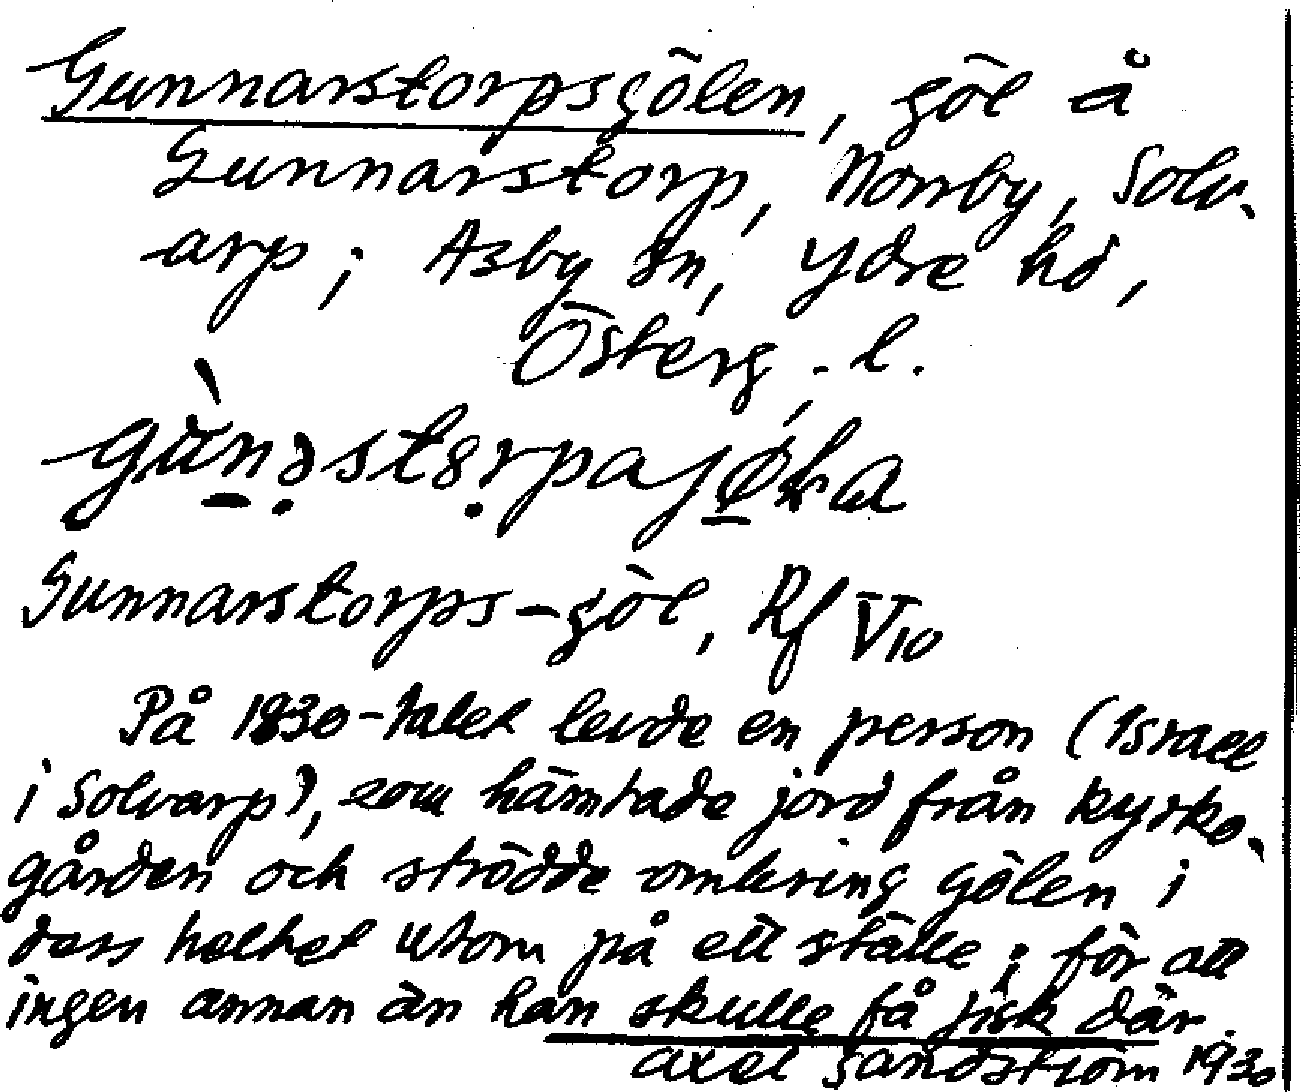 Gunnarstorpsgölen, göl å
Gunnarstorp, Norrby, Solv-
arp; Asby sn, Ydre hd,
Österg. l.
Gunnarstorps-göl, Rf V10
På 1830-talet levde en person (Israel
i Solvarp), som hämtade jord från kyrko-
gården och strödde omkring gölen i
dess helhet utom på ett ställe; för att
ingen annan än han skulle få fisk där.
Axel Sandström 1930